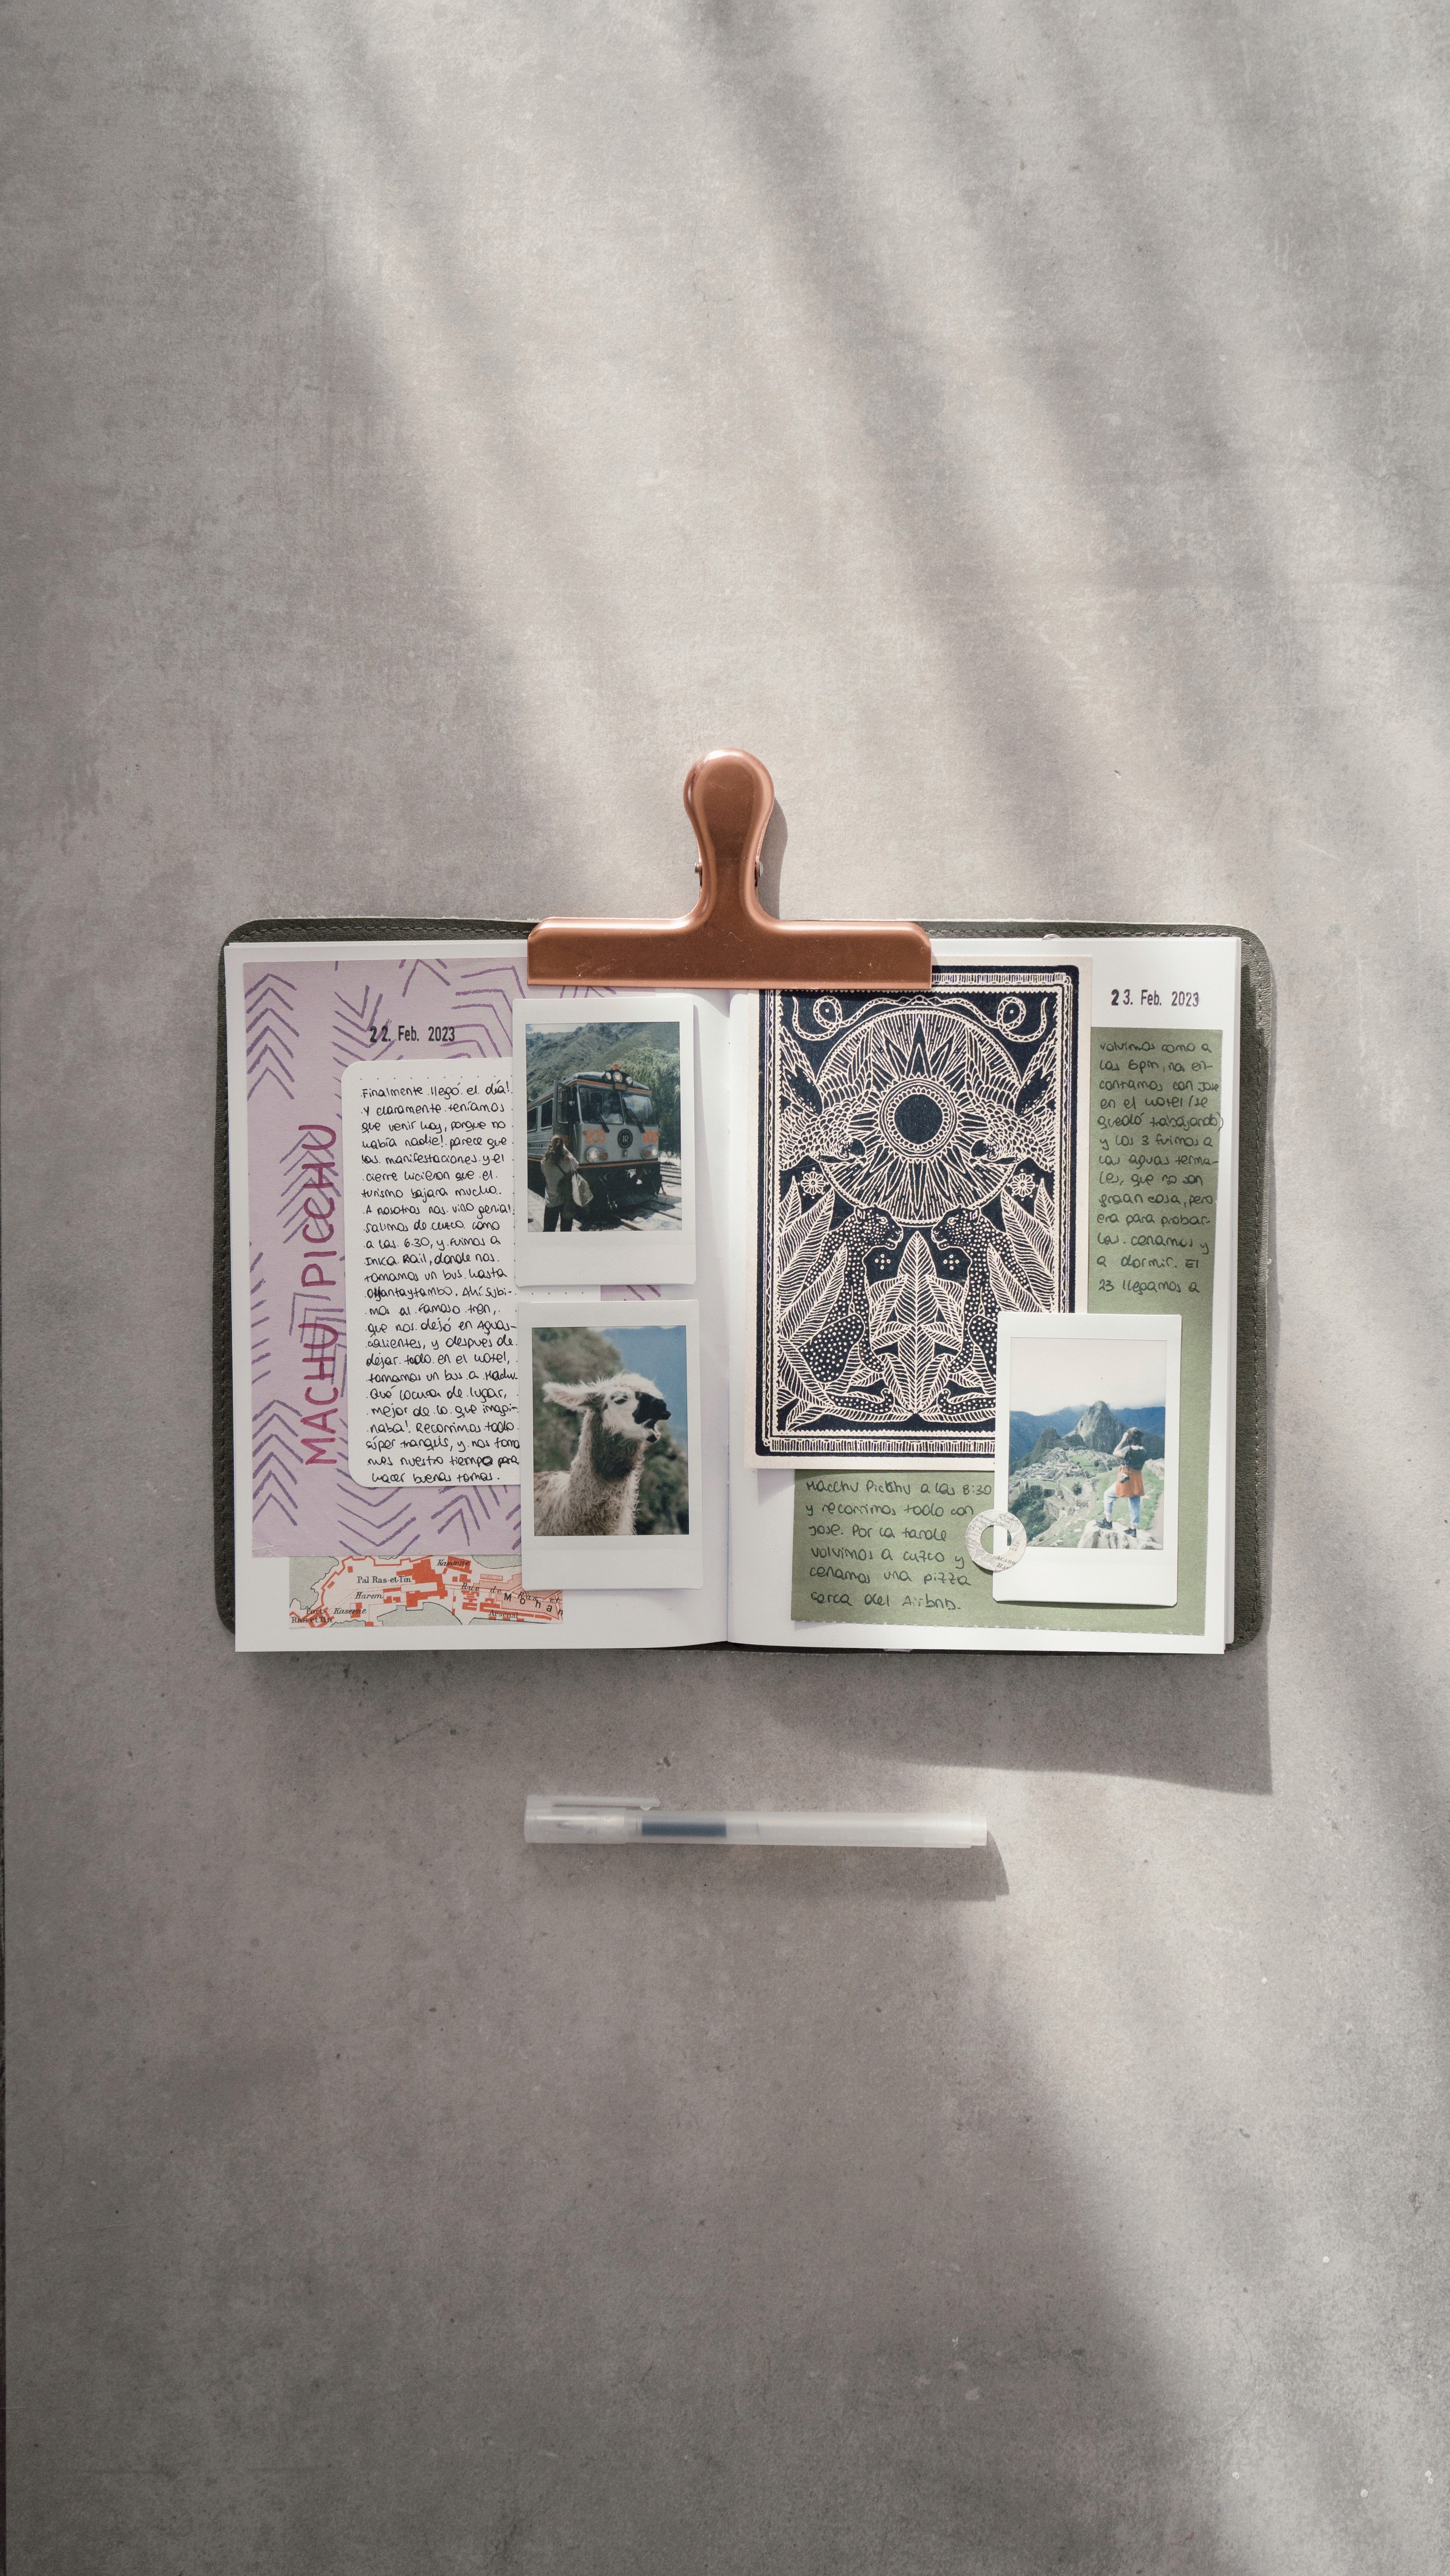 22. Feb. 2023
MACHU PICCHU
Finalmente llegó el día!
Y claramente teníamos
que venir hoy, porque no
había nadie! parece que
las manifestaciones y el
cierre hicieron que el
turismo bajara mucho.
A nosotros nos vino genial!
Salimos de cuzco como
a las 6.30, y fuimos a
Inka Rail, donde nos
tomamos un bus hasta
Ollantaytambo. Ahí subi-
mos al famoso tren,
que nos dejó en Aguas-
calientes, y después de
dejar todo en el hotel,
tomamos un bus a Machu.
Qué locura de lugar,
mejor de lo que imagi-
naba! Recorrimos todo
súper tranquis, y nos toma
mos nuestro tiempo para
hacer buenas tomas.
Kaserne
Pal Ras-et-Tin
Harem
Rue de
Kaserne
Ras-et-Tin
23. Feb. 2023
volvimos como a
las 6pm, nos en-
contramos con Jose
en el hotel (se
quedó trabajando)
y los 3 fuimos a
las aguas terma-
les, que no son
graan cosa, pero
era para probar-
las. cenamos y
a dormir. El
23 llegamos a
Macchu Picchu a las 8:30
y recorrimos todo con
Jose. Por la tarde
volvimos a cuzco y
cenamos una pizza
cerca del Airbnb.